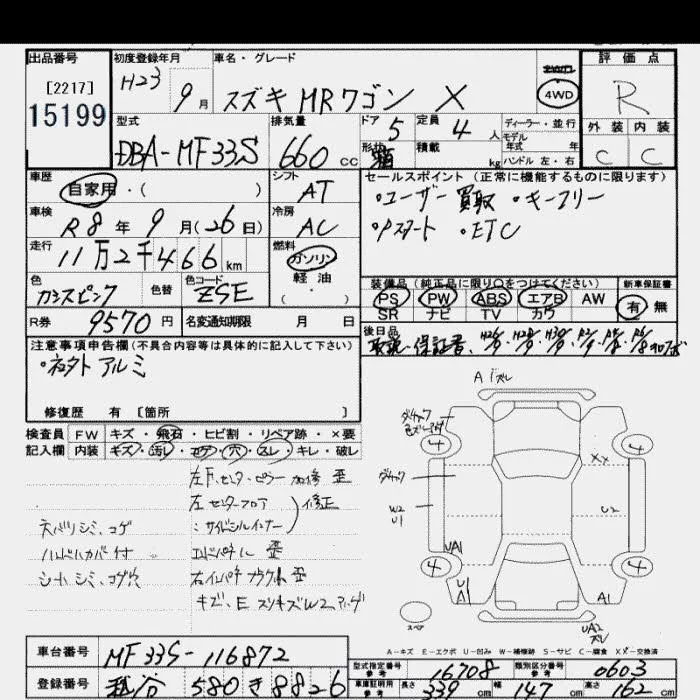 出品番号
[2217]
15199
初度登録年月
H23 9月
車名・グレード
スズキ MRワゴン X
4WD
評価点
R
外装 内装
C C
型式
DBA-MF33S
排気量
660 CC
ドア 5
形状
定員 4人
積載 kg
ディーラー・並行
モデル年式 年
ハンドル 左・右
車歴
自家用・( )
シフト
AT
車検
R8年9月(26日)
冷房
AC
走行
11万2千466km
燃料
ガソリン
軽油
・( )
色
カシスピンク
色替
色コード
ZSE
R券 9570円
名変通知期限 月 日
セールスポイント(正常に機能するものに限ります)
・ユーザー買取 ・キーフリー
・Pスタート ・ETC
装備品(純正品に限り○をつけてください)
PS PW ABS エアB AW
SR ナビ TV カワ
新車保証書
有 無
後日品
取説・保証書、
注意事項申告欄(不具合内容等は具体的に記入して下さい)
・社外アルミ
修復歴 有[箇所 ]
検査員記入欄
FW キズ・飛石・ヒビ割・リペア跡・×要
内装 キズ・汚れ・コゲ・穴・スレ・キレ・破レ
左F、センターピラー 歪
左センターフロア 修正
天バリシミ、コゲ
:サイドシルインナー
ハンドルカバー付
エンドパネル 歪
シートシミ、コゲ穴
右インパネブラケット歪
キズ、E スリキズW2、
Aズレ
4 4
XX
W2
U1
U2
UA1
4 4
U1
A1
A1
スペア
UA2
ズレ
A-キズ E-エクボ U-凹み W-補修跡 S-サビ C-腐食 XX-交換済
車台番号 MF33S-116872
登録番号 越谷 580 き 8826
型式指定番号 参考 16708
類別区分番号 参考 0603
車庫証明用 参考 長さ 339cm 幅 147cm 高さ 162cm